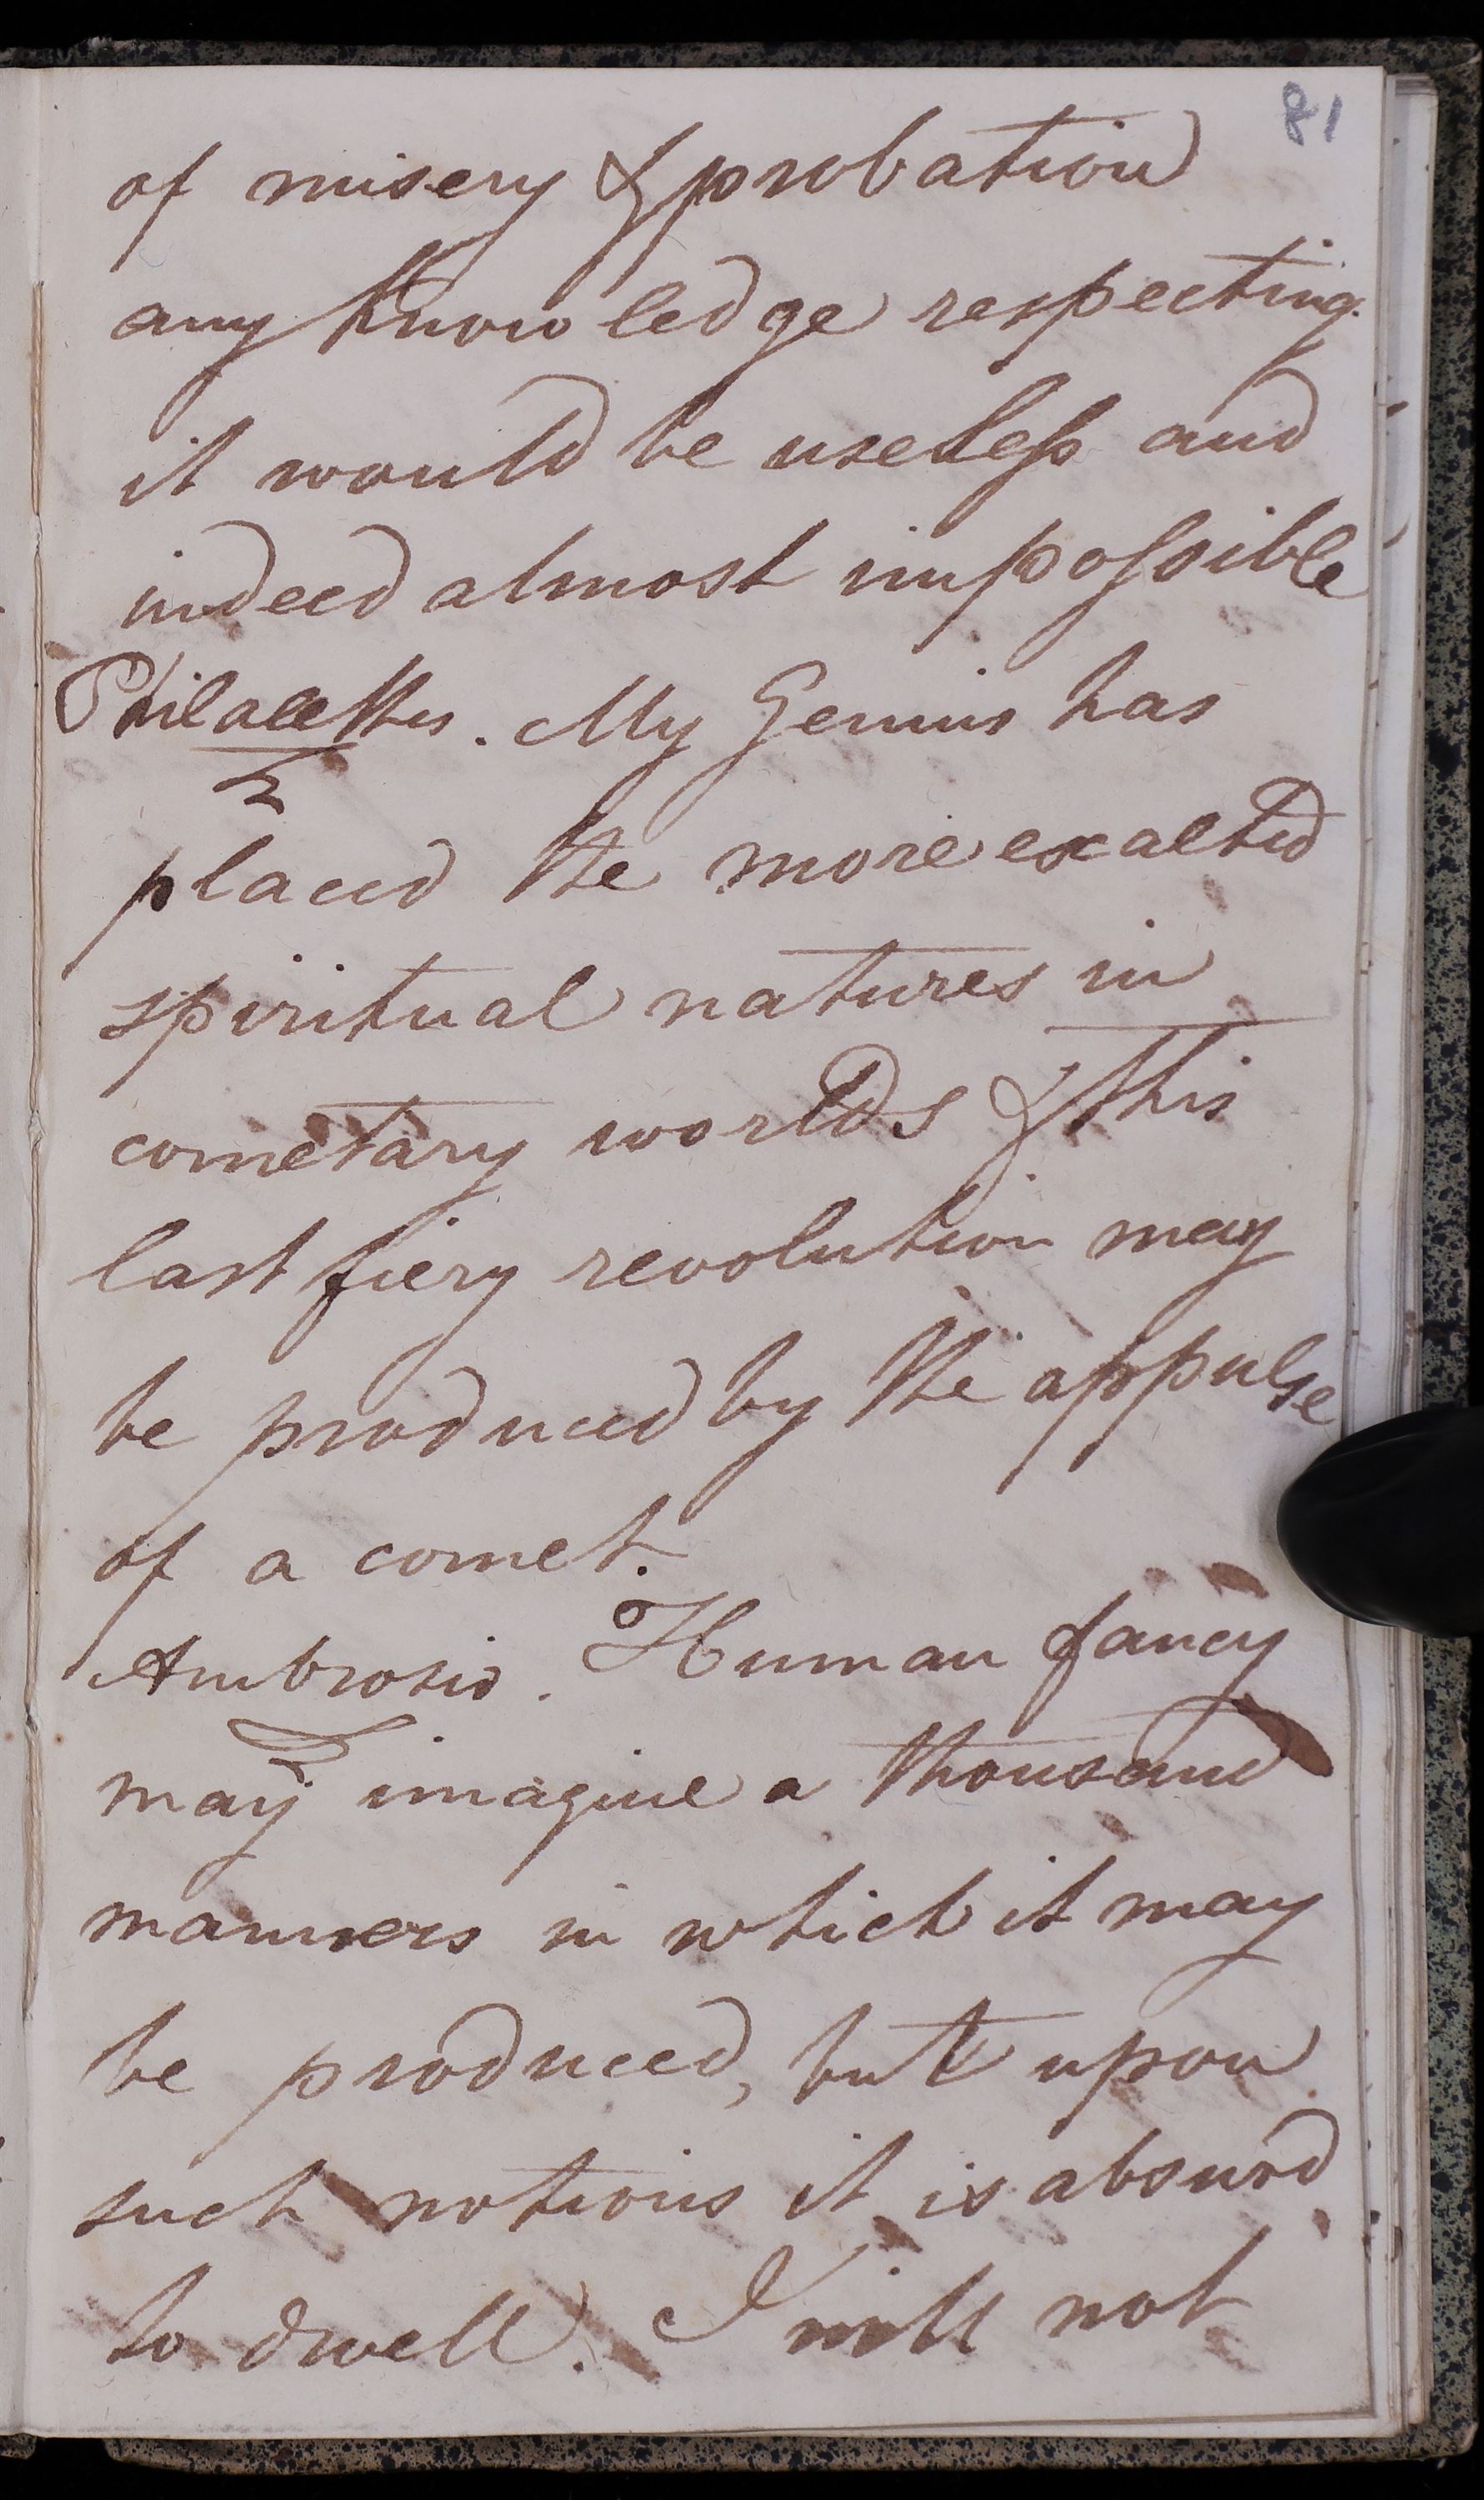 81
of misery & probation
any knowledge respecting
it would be useless and
indeed almost impossible
Philalethes. My Genius has
placed the more exalted
spiritual natures in
cometary worlds & this
last fiery revolution may
be produced by the appulse
of a comet.
Ambrosio. Human fancy
may imagine a thousand
manners in which it may
be produced, but upon
such notions it is absurd
to dwell. I will not